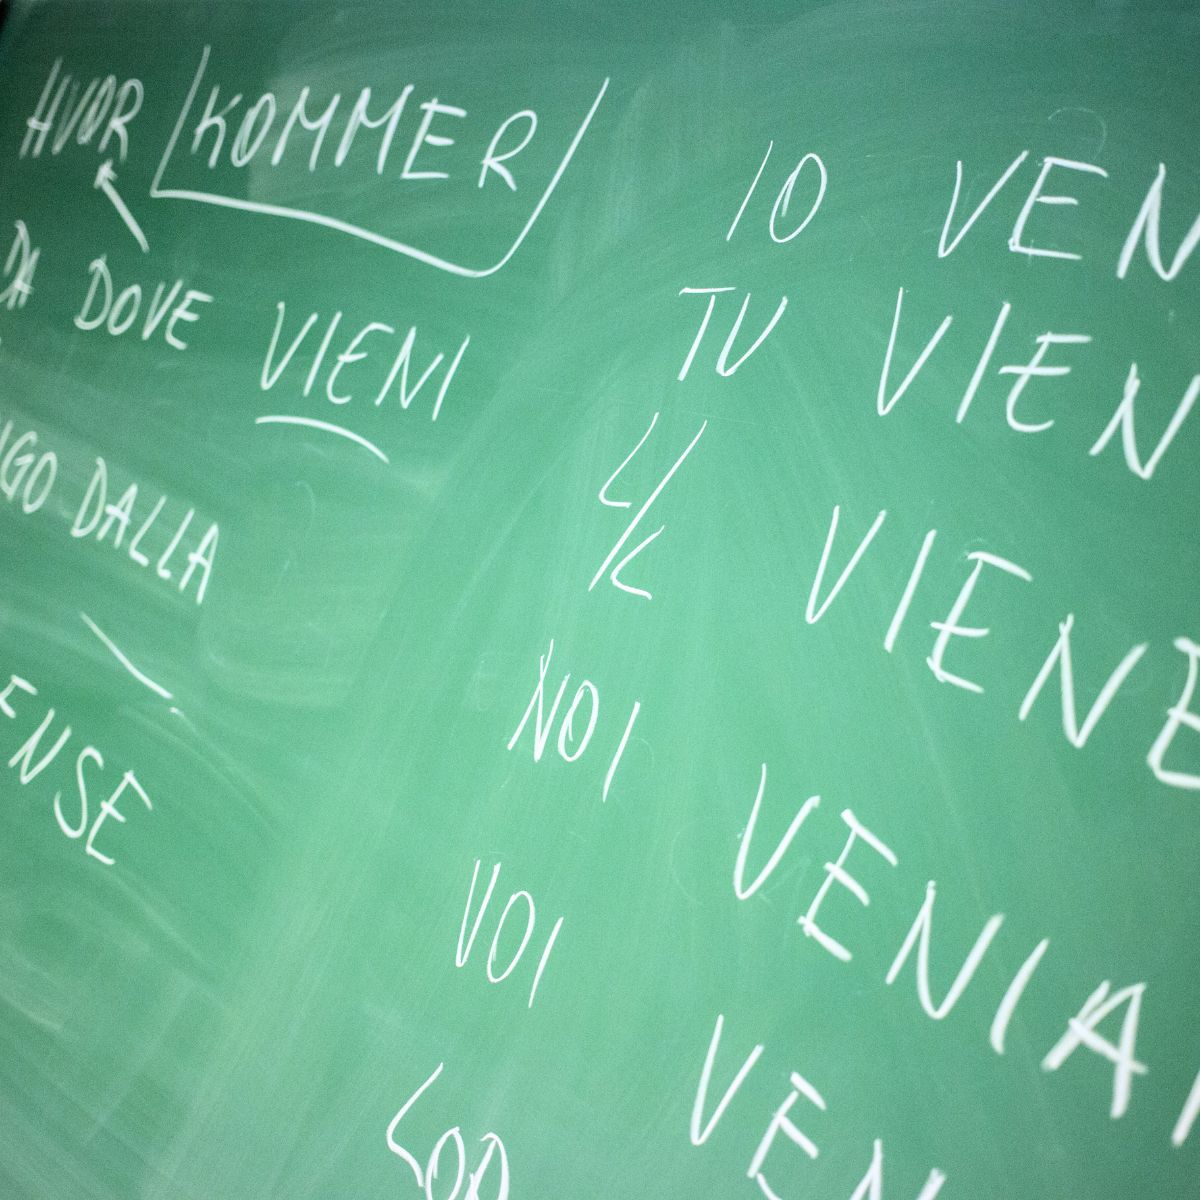 HVOR KOMMER
DA DOVE VIENI
IGO DALLA
ENSE
IO VEN
TU VIEN
L/L VIENE
NOI VENIA
VOI VEN
LOR